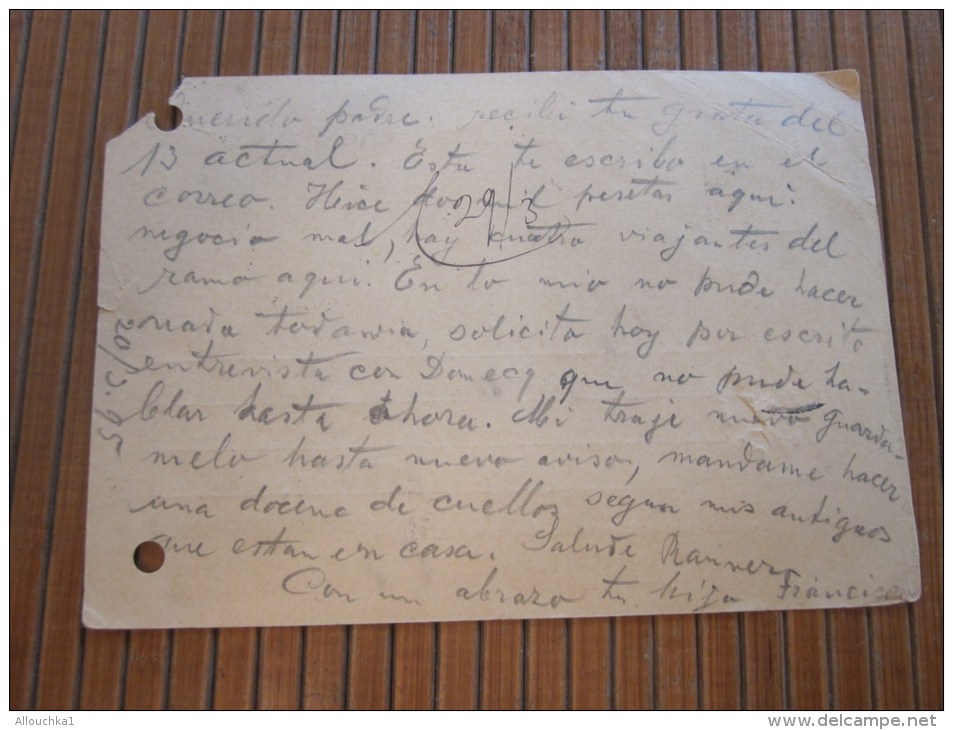 Querido padre. recibi tu grata del
13 actual. Esta te escribo en el
correo. Hice dos mil pesetas aqui.
negocio mal, hay cuatro viajantes del
ramo aqui. En lo mio no pude hacer
nada todavia, solicita hoy por escrito
entrevista con Domecq que no pude ha-
blar hasta ahora. Mi traje nuevo guarda-
melo hasta nuevo aviso, mandame hacer
una docena de cuellos segun mis antiguos
que estan en casa. Salude
Con un abrazo tu hijo Francisco
29/3
Allouchka1
www.delcampe.net